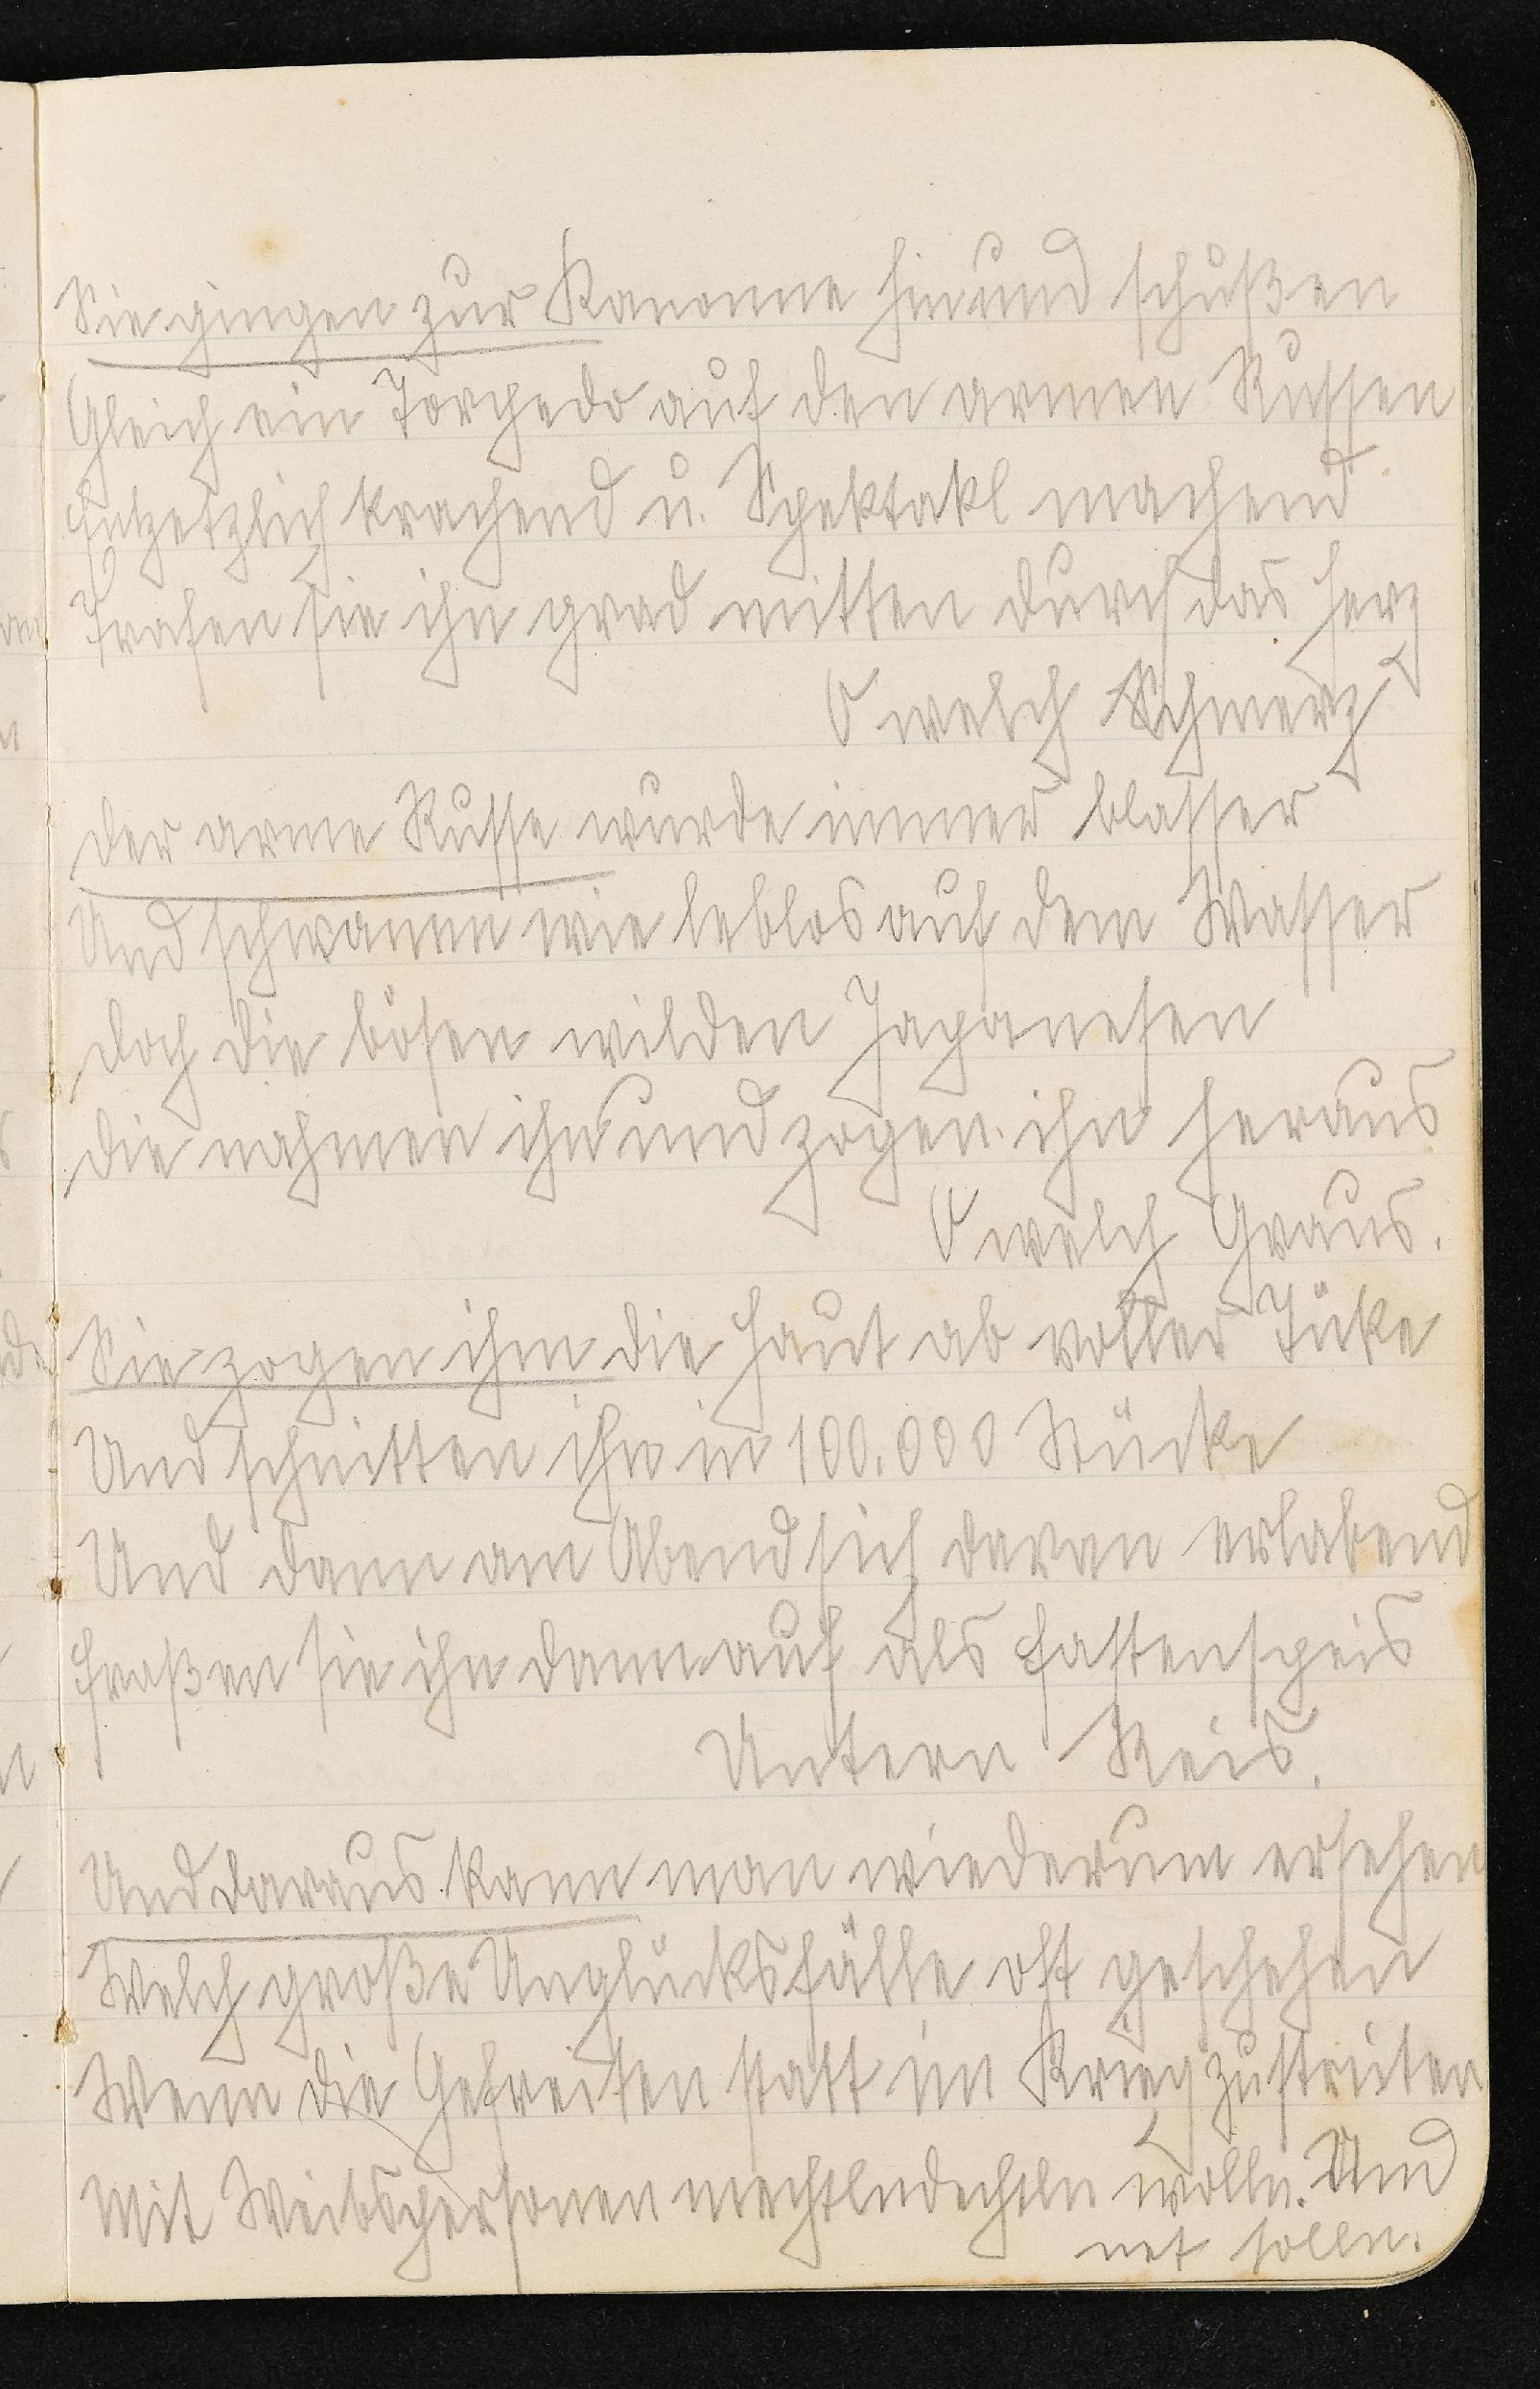 Sie gingen zur Kanonne hin und schußen
Gleich ein Torpedo auf den armen Russen
Entzetzlich krachend u. Spektakl machend
Trafen sie ihn grad mitten durch das Herz
O welch Schmerz
Der arme Russe wurde immer blasser
Und schwamm wie leblos auf dem Wasser
Doch die bösen wilden Japanesen
Die nahmen ihn und zogen ihn heraus
O welch Graus.
Sie zogen ihm die Haut ab voller Tüke
Und schnitten ihn in 100.000 Stücke
Und dann am Abend sich daran erlabend
Fraßen sie ihn dann auf als Fastenspeis
Untern Reis.
Und daraus kann man wiederum ersehen
Welch große Unglücksfälle oft geschehen
Wenn die Gefreiten statt im Krieg zu streiten
Mit Weibspersonen mechtlndechtln wolln. Und
net solln.